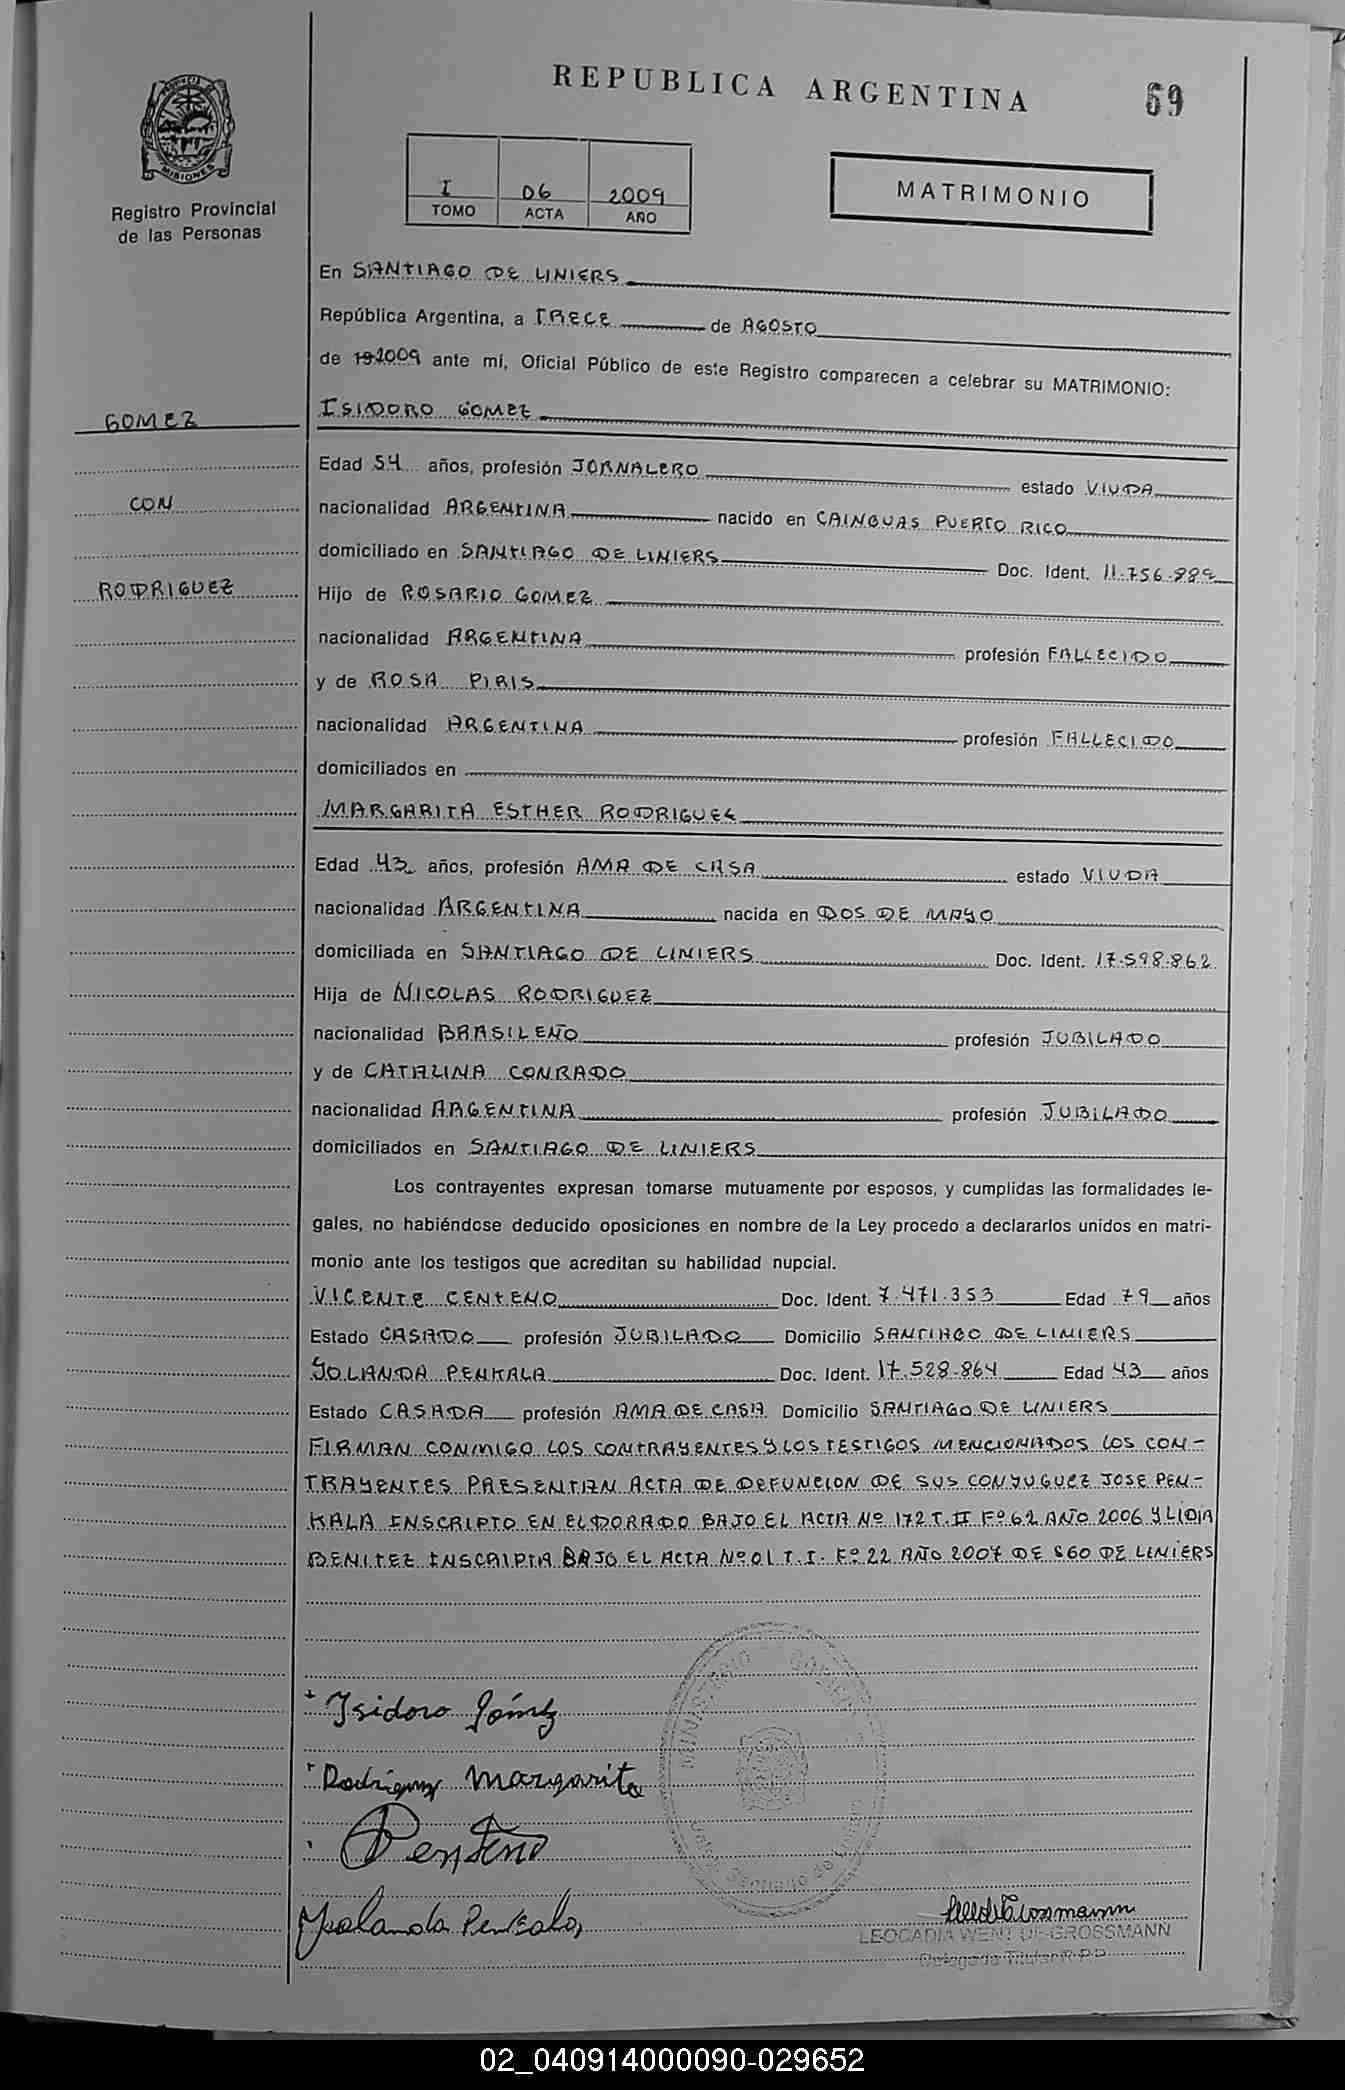 REPUBLICA ARGENTINA
69
PROVINCIA DE
MISIONES
Registro Provincial
de las Personas
I 06 2009
TOMO ACTA AÑO
MATRIMONIO
En SANTIAGO DE LINIERS
República Argentina, a TRECE de AGOSTO
de 192009 ante mí, Oficial Público de este Registro comparecen a celebrar su MATRIMONIO:
GOMEZ
CON
RODRIGUEZ
ISIDORO GOMEZ
Edad 54 años, profesión JORNALERO estado VIUDA
nacionalidad ARGENTINA nacido en CAINGUAS PUERTO RICO
domiciliado en SANTIAGO DE LINIERS Doc. Ident.
Hijo de ROSARIO GOMEZ
nacionalidad ARGENTINA profesión FALLECIDO
y de ROSA PIRIS
nacionalidad ARGENTINA profesión FALLECIDO
domiciliados en
MARGARITA ESTHER RODRIGUEZ
Edad 43 años, profesión AMA DE CASA estado VIUDA
nacionalidad ARGENTINA nacida en DOS DE MAYO
domiciliada en SANTIAGO DE LINIERS Doc. Ident. 17.598.862
Hija de NICOLAS RODRIGUEZ
nacionalidad BRASILEÑO profesión JUBILADO
y de CATALINA CONRADO
nacionalidad ARGENTINA profesión JUBILADO
domiciliados en SANTIAGO DE LINIERS
Los contrayentes expresan tomarse mutuamente por esposos, y cumplidas las formalidades le-
gales, no habiéndose deducido oposiciones en nombre de la Ley procedo a declararlos unidos en matri-
monio ante los testigos que acreditan su habilidad nupcial.
VICENTE CENTENO Doc. Ident. 7.471.353 Edad 79 años
Estado CASADO profesión JUBILADO Domicilio SANTIAGO DE LINIERS
YOLANDA PENKALA Doc. Ident. 17.528.864 Edad 43 años
Estado CASADA profesión AMA DE CASA Domicilio SANTIAGO DE LINIERS
FIRMAN CONMIGO LOS CONTRAYENTES Y LOS TESTIGOS MENCIONADOS LOS CON-
TRAYENTES PRESENTAN ACTA DE DEFUNCION DE SUS CONYUGUEZ JOSE PEN-
KALA INSCRIPTO EN ELDORADO BAJO EL ACTA Nº 172 T. II Fº 62 AÑO 2006 Y LIDIA
BENITEZ INSCRIPTA BAJO EL ACTA Nº 01 T. I. Fº 22 AÑO 2007 DE SGO DE LINIERS
Isidoro Gómez
Rodriguez Margarita
Centeno
Yolanda Penkala
MINISTERIO
LEOCADIA WENT DE GROSSMANN
Delegada Titular R.P.P.
02_040914000090-029652